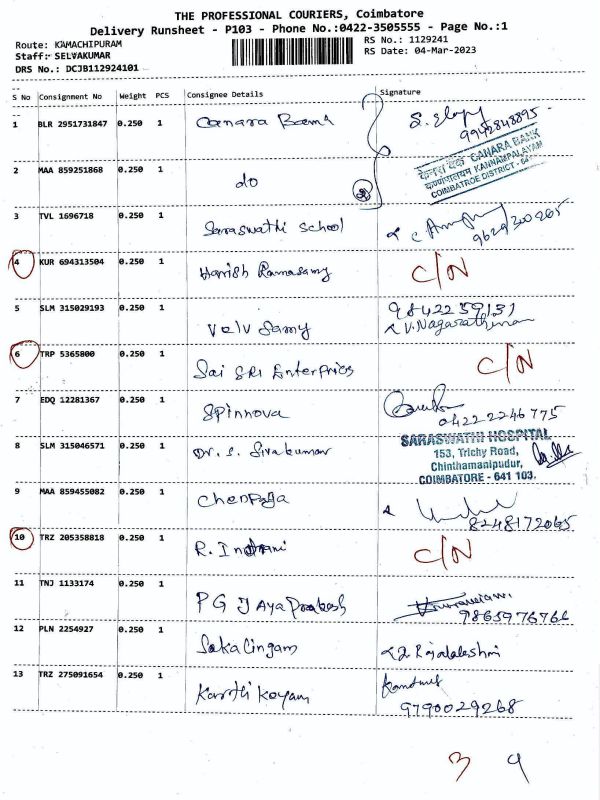 THE PROFESSIONAL COURIERS, Coimbatore
Delivery Runsheet - P103 - Phone No.:0422-3505555 - Page No.:1
Route: KAMACHIPURAM
RS No.: 1129241
Staff: SELVAKUMAR
RS Date: 04-Mar-2023
DRS No.: DCJB112924101
S No Consignment No Weight PCS Consignee Details Signature
1 BLR 2951731847 0.250 1 Canara Bank
9942848895
2 MAA 859251868 0.250 1 do
केनरा बैंक CANARA BANK
KANNAMPALAYAM
COIMBATROE DISTRICT - 64
3 TVL 1696718 0.250 1 Saraswathi School
9629300265
4 KUR 694313504 0.250 1 Harrish Ramasamy C/N
5 SLM 315029193 0.250 1 Velv Samy 9842259131
V.Nagarathinam
6 TRP 5365800 0.250 1 Sai SRI Enterprices C/N
7 EDQ 12281367 0.250 1 Spinnova
04222246775
8 SLM 315046571 0.250 1 Dr. S. Sivakumar
SARASWATHI HOSPITAL
153, Trichy Road,
Chinthamanipudur,
COIMBATORE - 641 103.
9 MAA 859455082 0.250 1 Chenpaga
8248172065
10 TRZ 205358818 0.250 1 R. Indrani C/N
11 TNJ 1133174 0.250 1 PG JAya Prakash
9865976766
12 PLN 2254927 0.250 1 Sakalingam Rajalakshmi
13 TRZ 275091654 0.250 1 Karthi Keyam
9790029268
3 9